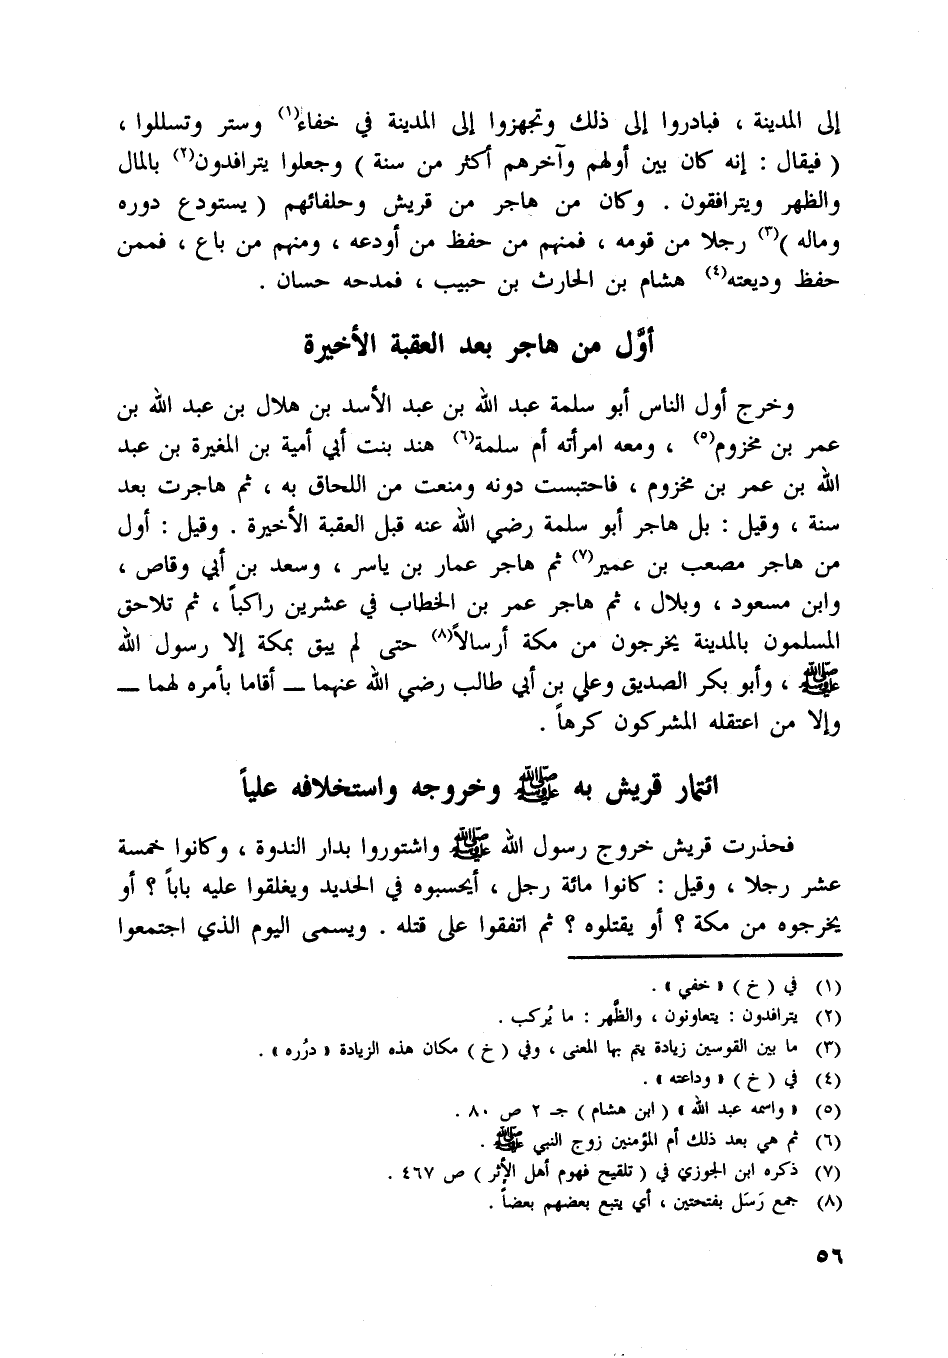 إلى المدينة ، فبادروا إلى ذلك وتجهزوا إلى المدينة في خفاء(١) وستر وتسللوا ،
( فيقال : إنه كان بين أولهم وآخرهم أكثر من سنة ) وجعلوا يترافدون(٢) بالمال
والظهر ويترافقون . وكان من هاجر من قريش وحلفائهم ( يستودع دوره
وماله )(٣) رجلا من قومه ، فمنهم من حفظ من أودعه ، ومنهم من باع ، فممن
حفظ وديعته(٤) هشام بن الحارث بن حبيب ، فمدحه حسان .
أوَّل من هاجر بعد العقبة الأخيرة
وخرج أول الناس أبو سلمة عبد الله بن عبد الأسد بن هلال بن عبد الله بن
عمر بن مخزوم(٥) ، ومعه امرأته أم سلمة(٦) هند بنت أبي أمية بن المغيرة بن عبد
الله بن عمر بن مخزوم ، فاحتبست دونه ومنعت من اللحاق به ، ثم هاجرت بعد
سنة ، وقيل : بل هاجر أبو سلمة رضي الله عنه قبل العقبة الأخيرة . وقيل : أول
من هاجر مصعب بن عمير(٧) ثم هاجر عمار بن ياسر ، وسعد بن أبي وقاص ،
وابن مسعود ، وبلال ، ثم هاجر عمر بن الخطاب في عشرين راكباً ، ثم تلاحق
المسلمون بالمدينة يخرجون من مكة أرسالاً(٨) حتى لم يبق بمكة إلا رسول الله
ﷺ ، وأبو بكر الصديق وعلي بن أبي طالب رضي الله عنهما ــ أقاما بأمره لهما ــ
وإلا من اعتقله المشركون كرهاً .
ائتمار قريش به ﷺ وخروجه واستخلافه علياً
فحذرت قريش خروج رسول الله ﷺ واشتوروا بدار الندوة ، وكانوا خمسة
عشر رجلا ، وقيل : كانوا مائة رجل ، أيحسبوه في الحديد ويغلقوا عليه باباً ؟ أو
يخرجوه من مكة ؟ أو يقتلوه ؟ ثم اتفقوا على قتله . ويسمى اليوم الذي اجتمعوا
(١) في ( خ ) « خفي » .
(٢) يترافدون : يتعاونون ، والظَّهر : ما يُركب .
(٣) ما بين القوسين زيادة يتم بها المعنى ، وفي ( خ ) مكان هذه الزيادة « درُره » .
(٤) في ( خ ) « وداعته » .
(٥) « واسمه عبد الله » ( ابن هشام ) جـ ٢ ص ٨٠ .
(٦) ثم هي بعد ذلك أم المؤمنين زوج النبي ﷺ .
(٧) ذكره ابن الجوزي في ( تلقيح فهوم أهل الأثر ) ص ٤٦٧ .
(٨) جمع رَسَل بفتحتين ، أي يتبع بعضهم بعضاً .
٥٦